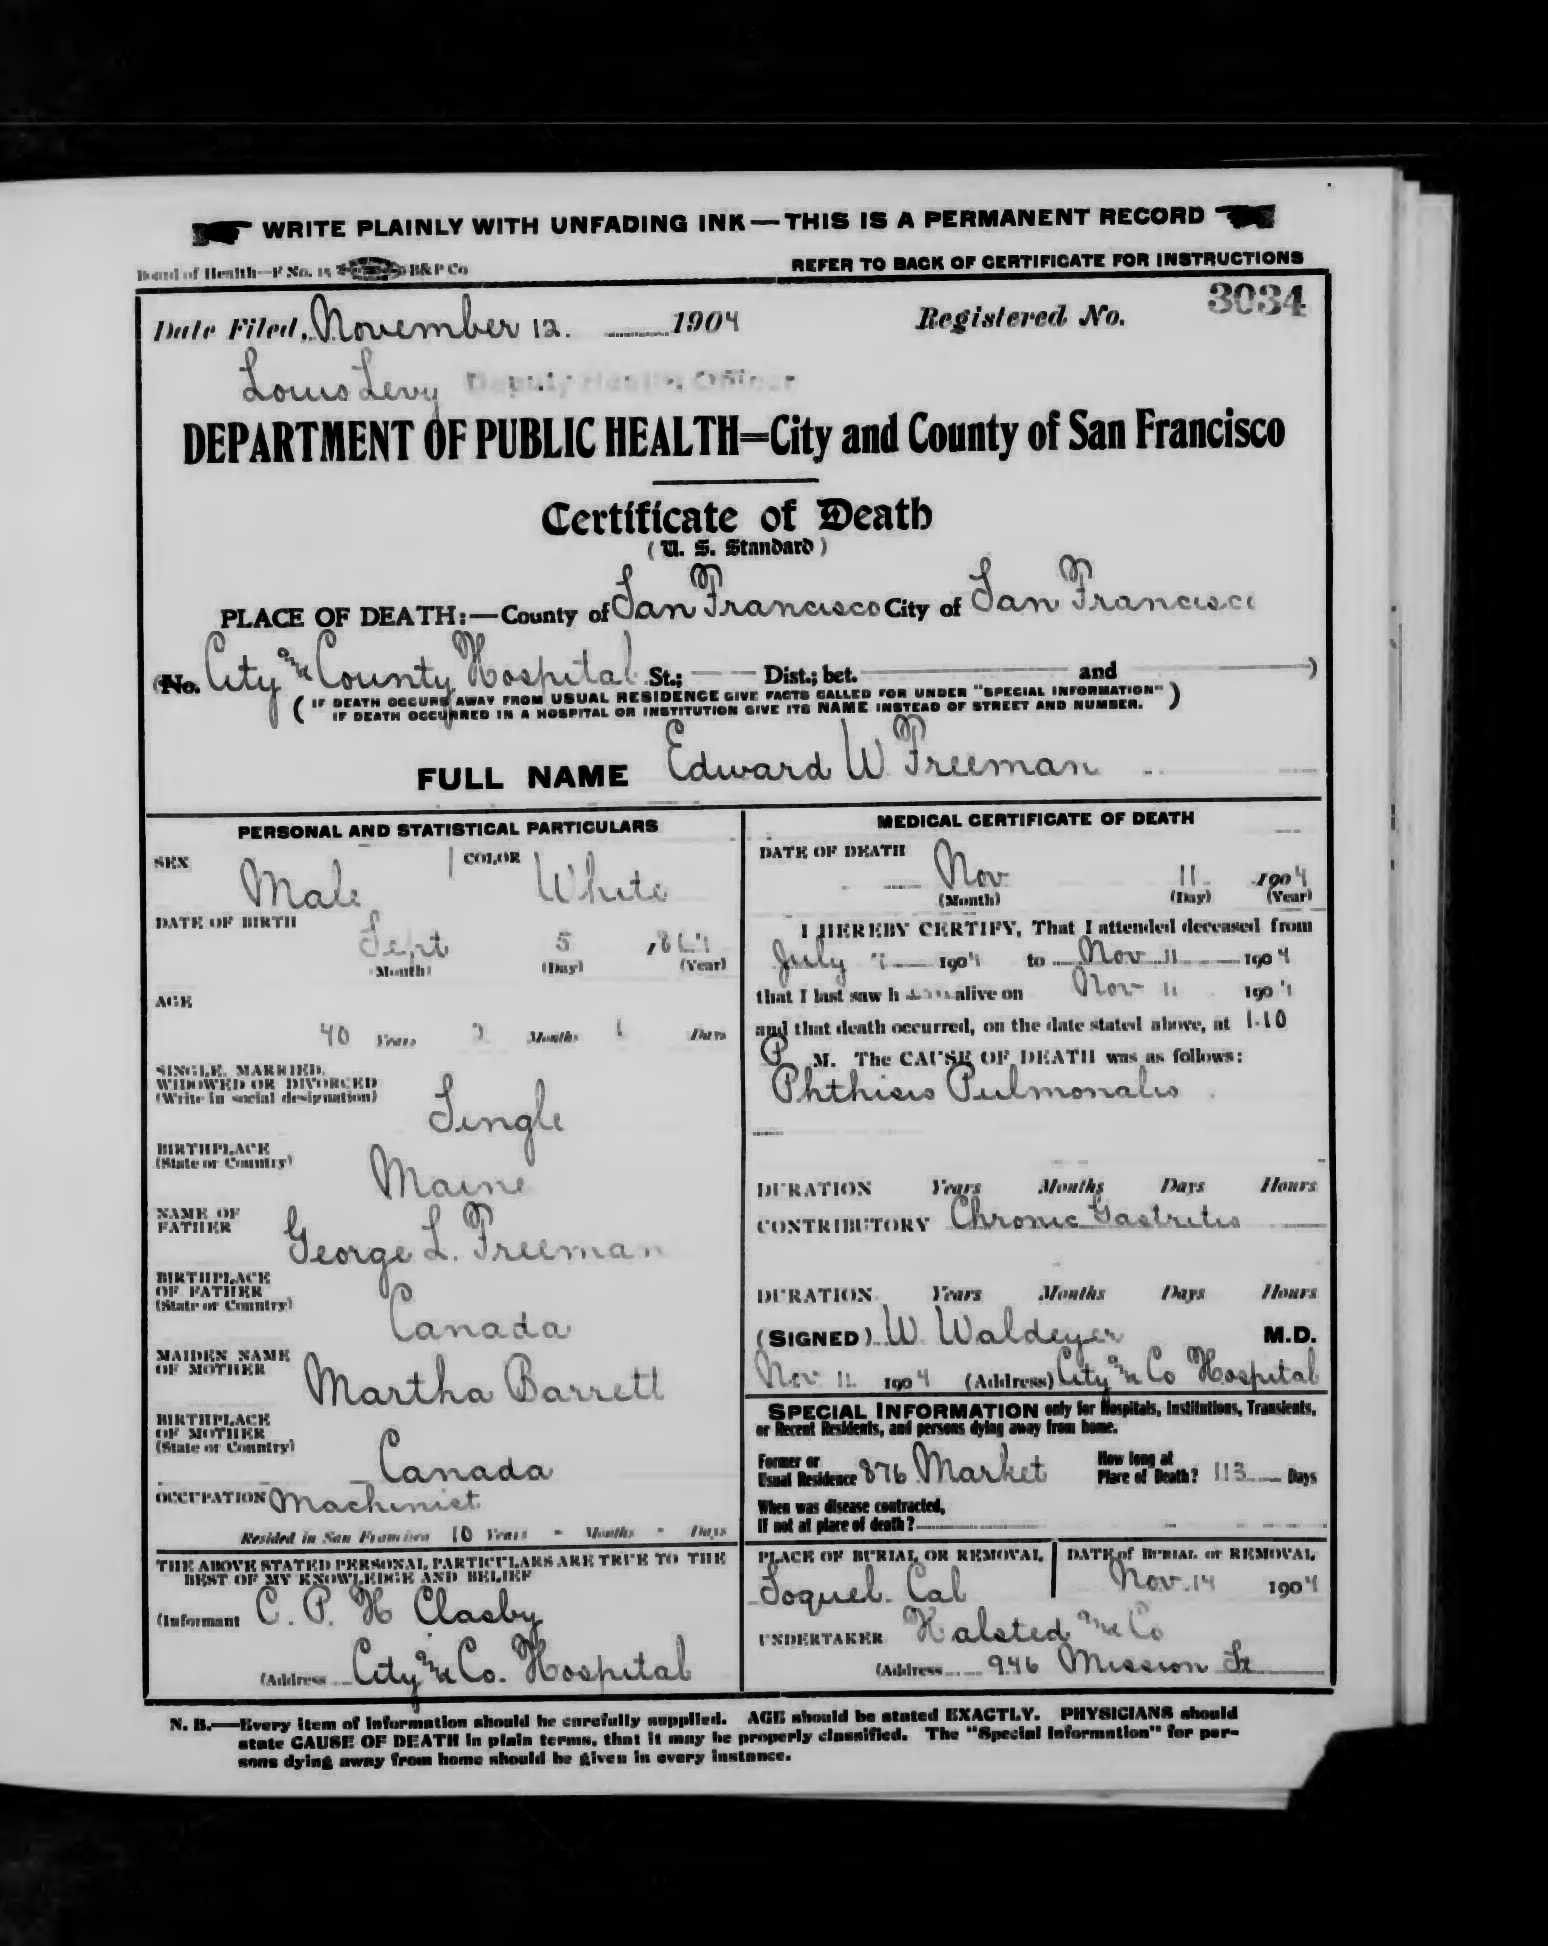 WRITE PLAINLY WITH UNFADING INK—THIS IS A PERMANENT RECORD
Board of Health—F No. 15 B&P Co
REFER TO BACK OF CERTIFICATE FOR INSTRUCTIONS
Date Filed, November 12. 1904 Registered No. 3034
Louis Levy Deputy Health Officer
DEPARTMENT OF PUBLIC HEALTH=City and County of San Francisco
Certificate of Death
(U. S. Standard)
PLACE OF DEATH:—County of San Francisco City of San Francisco
(No. City and County Hospital St.; Dist.; bet. and )
(IF DEATH OCCURS AWAY FROM USUAL RESIDENCE GIVE FACTS CALLED FOR UNDER "SPECIAL INFORMATION"
IF DEATH OCCURRED IN A HOSPITAL OR INSTITUTION GIVE ITS NAME INSTEAD OF STREET AND NUMBER.)
FULL NAME Edward W Freeman
PERSONAL AND STATISTICAL PARTICULARS
SEX Male COLOR White
DATE OF BIRTH
Sept 5
(Month) (Day) (Year)
AGE
40 Years 2 Months Days
SINGLE, MARRIED,
WIDOWED OR DIVORCED
(Write in social designation)
Single
BIRTHPLACE
(State or Country)
Maine
NAME OF
FATHER
George L. Freeman
BIRTHPLACE
OF FATHER
(State or Country)
Canada
MAIDEN NAME
OF MOTHER
Martha Barrett
BIRTHPLACE
OF MOTHER
(State or Country)
Canada
OCCUPATION Machinist
Resided in San Francisco 10 Years - Months - Days
THE ABOVE STATED PERSONAL PARTICULARS ARE TRUE TO THE
BEST OF MY KNOWLEDGE AND BELIEF
(Informant C. P. H Clasby
(Address City and Co. Hospital
MEDICAL CERTIFICATE OF DEATH
DATE OF DEATH
Nov 11 1904
(Month) (Day) (Year)
I HEREBY CERTIFY, That I attended deceased from
July 1904 to Nov 11 1904
that I last saw h alive on Nov 11 1904
and that death occurred, on the date stated above, at 1-10
P M. The CAUSE OF DEATH was as follows:
Phthisis Pulmonalis
DURATION Years Months Days Hours
CONTRIBUTORY Chronic Gastritis
DURATION Years Months Days Hours
(SIGNED) W. Waldeyer M.D.
Nov 11 1904 (Address) City and Co Hospital
SPECIAL INFORMATION only for Hospitals, Institutions, Transients,
or Recent Residents, and persons dying away from home.
Former or
Usual Residence 876 Market
How long at
Place of Death? 113 Days
When was disease contracted,
If not at place of death?
PLACE OF BURIAL OR REMOVAL
Soquel. Cal
DATE of BURIAL or REMOVAL
Nov. 14 1904
UNDERTAKER Halsted and Co
(Address 946 Mission St
N. B.—Every item of information should be carefully supplied. AGE should be stated EXACTLY. PHYSICIANS should
state CAUSE OF DEATH in plain terms, that it may be properly classified. The "Special Information" for per-
sons dying away from home should be given in every instance.